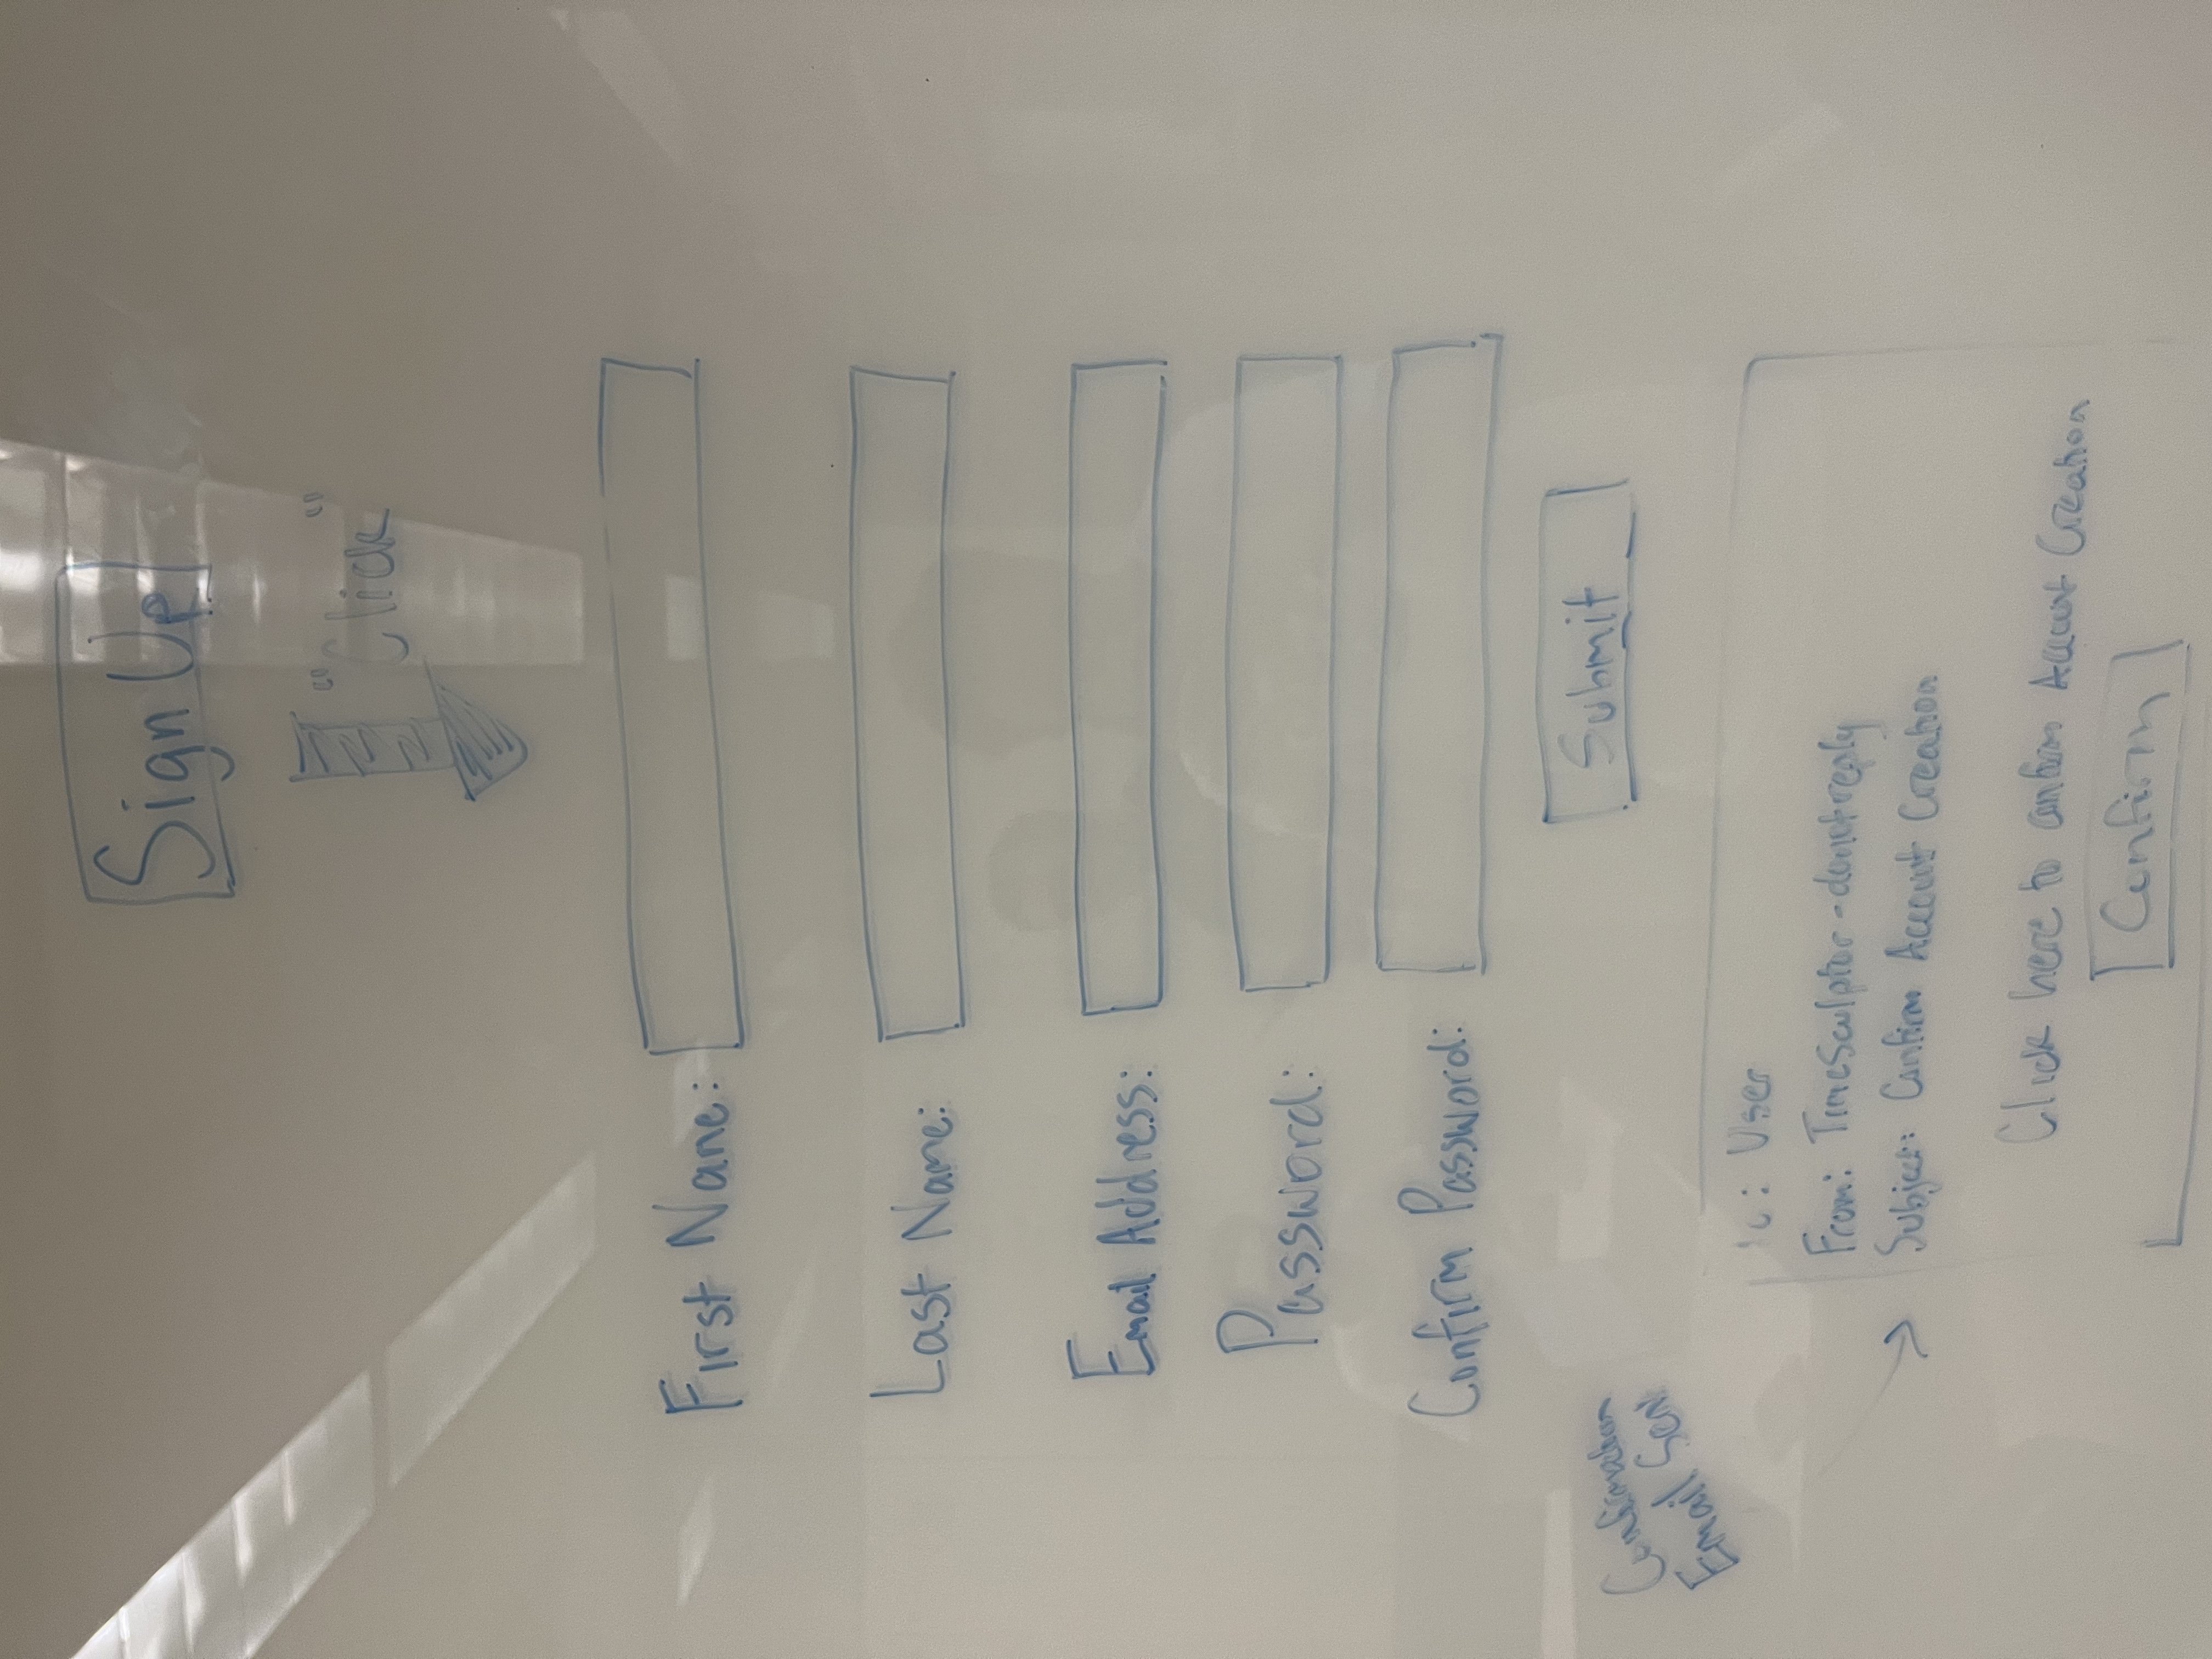 Sign Up
"Click"
First Name:
Last Name:
Email Address:
Password:
Confirm Password:
Submit
Confirmation
Email Sent
To: User
From: TimeSculptor-donotreply
Subject: Confirm Account Creation
Click here to confirm Account Creation
Confirm